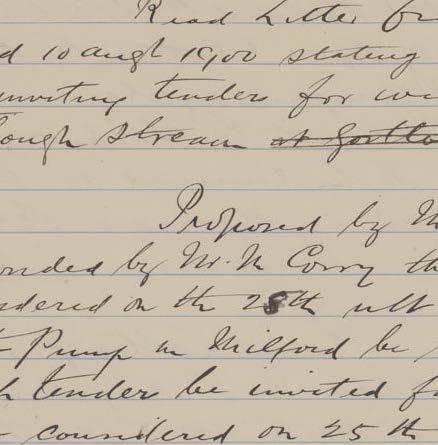 Read Letter fr
d 10 augt 1900 stating
inviting tenders for
ough stream ~~at Gortto~~
Proposed by M
onded by Mr. M Corry th
sidered on the 28th ult
Pump in Milford be
h tenders be invited f
considered on 25th